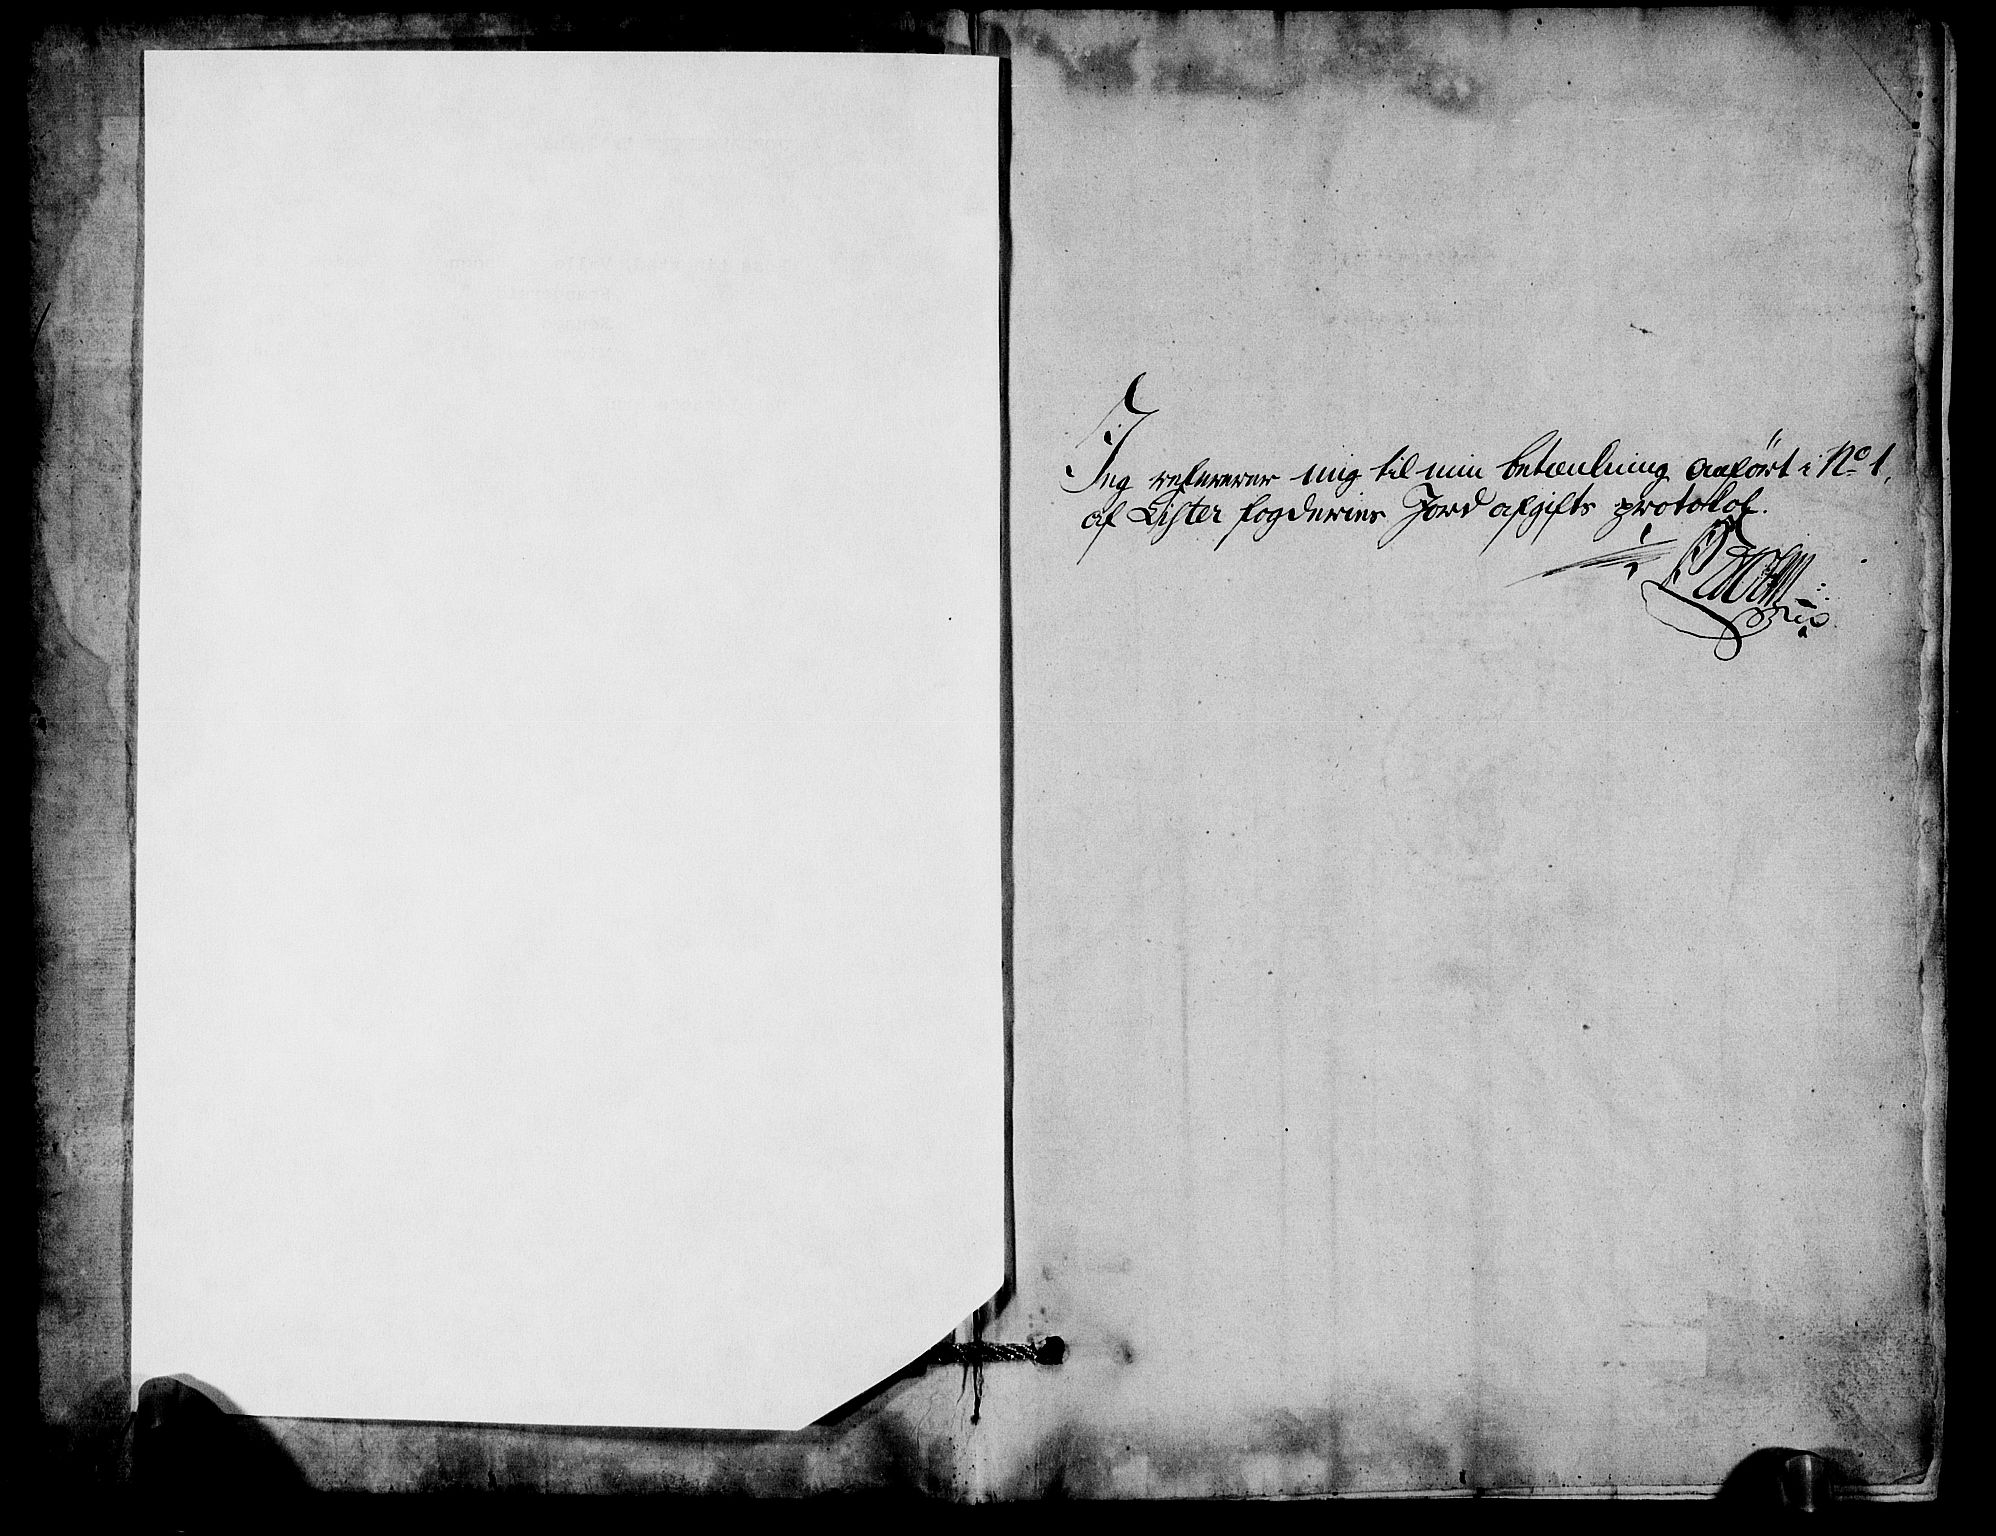 Jeg refererer mig til min betænkning anført i No 1,
af Lister fogderies Jord afgifts protokol.